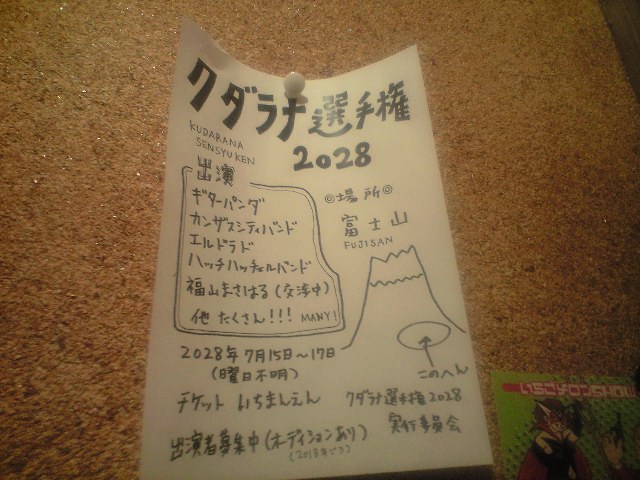 クダラナ選手権
KUDARANA
SENSYUKEN
2028
出演
ギターパンダ
カンザスシティバンド
エルドラド
ハッチハッチェルバンド
福山まさはる(交渉中)
他 たくさん!!! MANY!
◎場所◎
富士山
FUJISAN
このへん
2028年7月15日〜17日
(曜日不明)
チケット いちまんえん
クダラナ選手権2028
実行委員会
出演者募集中(オーディションあり)
(2018年ごろ)